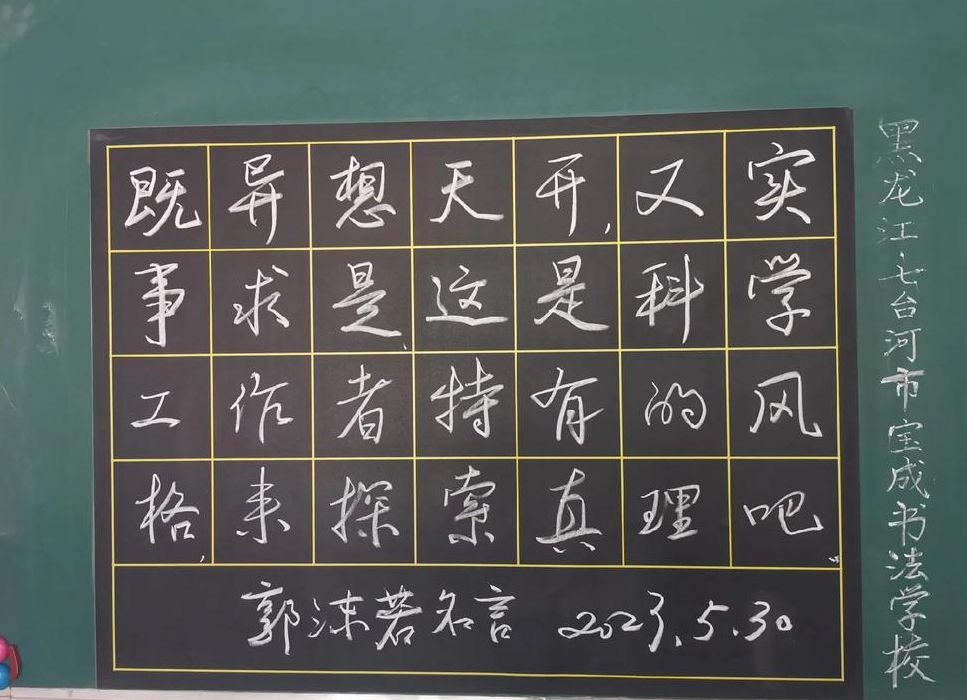 既异想天开,又实
事求是,这是科学
工作者特有的风
格,来探索真理吧
郭沫若名言 2023.5.30
黑龙江七台河市宝成书法学校